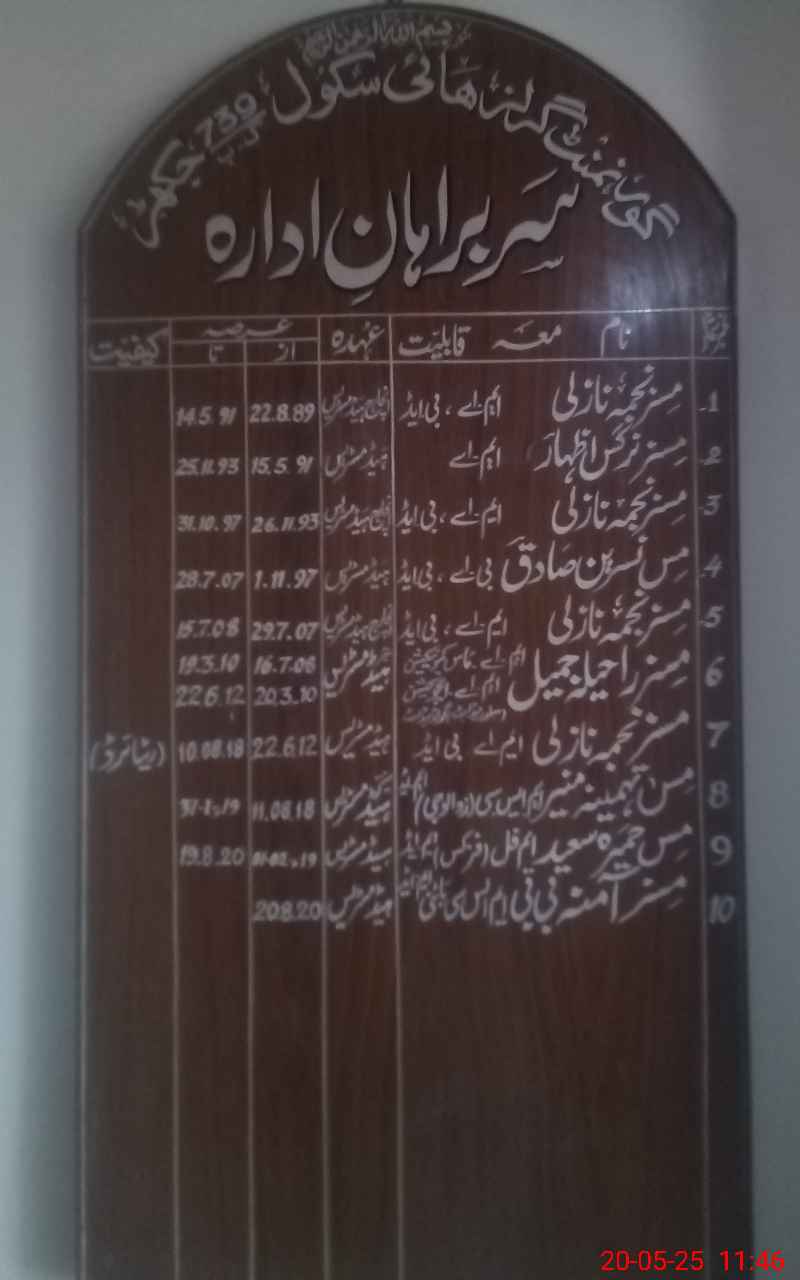 بسم اللہ الرحمن الرحیم
گورنمنٹ گرلز ہائی سکول 739 گ ب جکھڑ
سربراہانِ ادارہ
نمبر شمار نام معہ قابلیت عہدہ عرصہ کیفیت
از تا
1- مسز نجمہ نازلی ایم۔اے ، بی ایڈ انچارج ہیڈمسٹریس 22.8.89 14.5.91
2- مسز نرگس اظہار ایم۔اے ہیڈمسٹریس 15.5.91 25.11.93
3- مسز نجمہ نازلی ایم۔اے ، بی ایڈ انچارج ہیڈمسٹریس 26.11.93 31.10.97
4- مس نسرین صادق بی۔اے ، بی ایڈ ہیڈمسٹریس 1.11.97 28.7.07
5- مسز نجمہ نازلی ایم۔اے ، بی ایڈ انچارج ہیڈمسٹریس 29.7.07 15.7.08
6 مسز راحیلہ جمیل ایم اے ماس کمیونیکیشن ہیڈمسٹریس 16.7.08 19.3.10
ایم اے ایجوکیشن 20.3.10 22.6.12
7 مسز نجمہ نازلی ایم اے بی ایڈ ہیڈمسٹریس 22.6.12 10.08.18 (ریٹائرڈ)
8 مس تہمینہ منیر ایم ایس سی (زوالوجی) ایم ایڈ ہیڈمسٹریس 11.08.18 31-1-19
9 مس حمیرہ سعید ایم فل (فزکس) ایم ایڈ ہیڈمسٹریس 01-02-19 19.8.20
10- مسز آمنہ بی بی ایم ایس سی باٹنی ایم ایڈ ہیڈمسٹریس 20.8.20
20-05-25 11:46